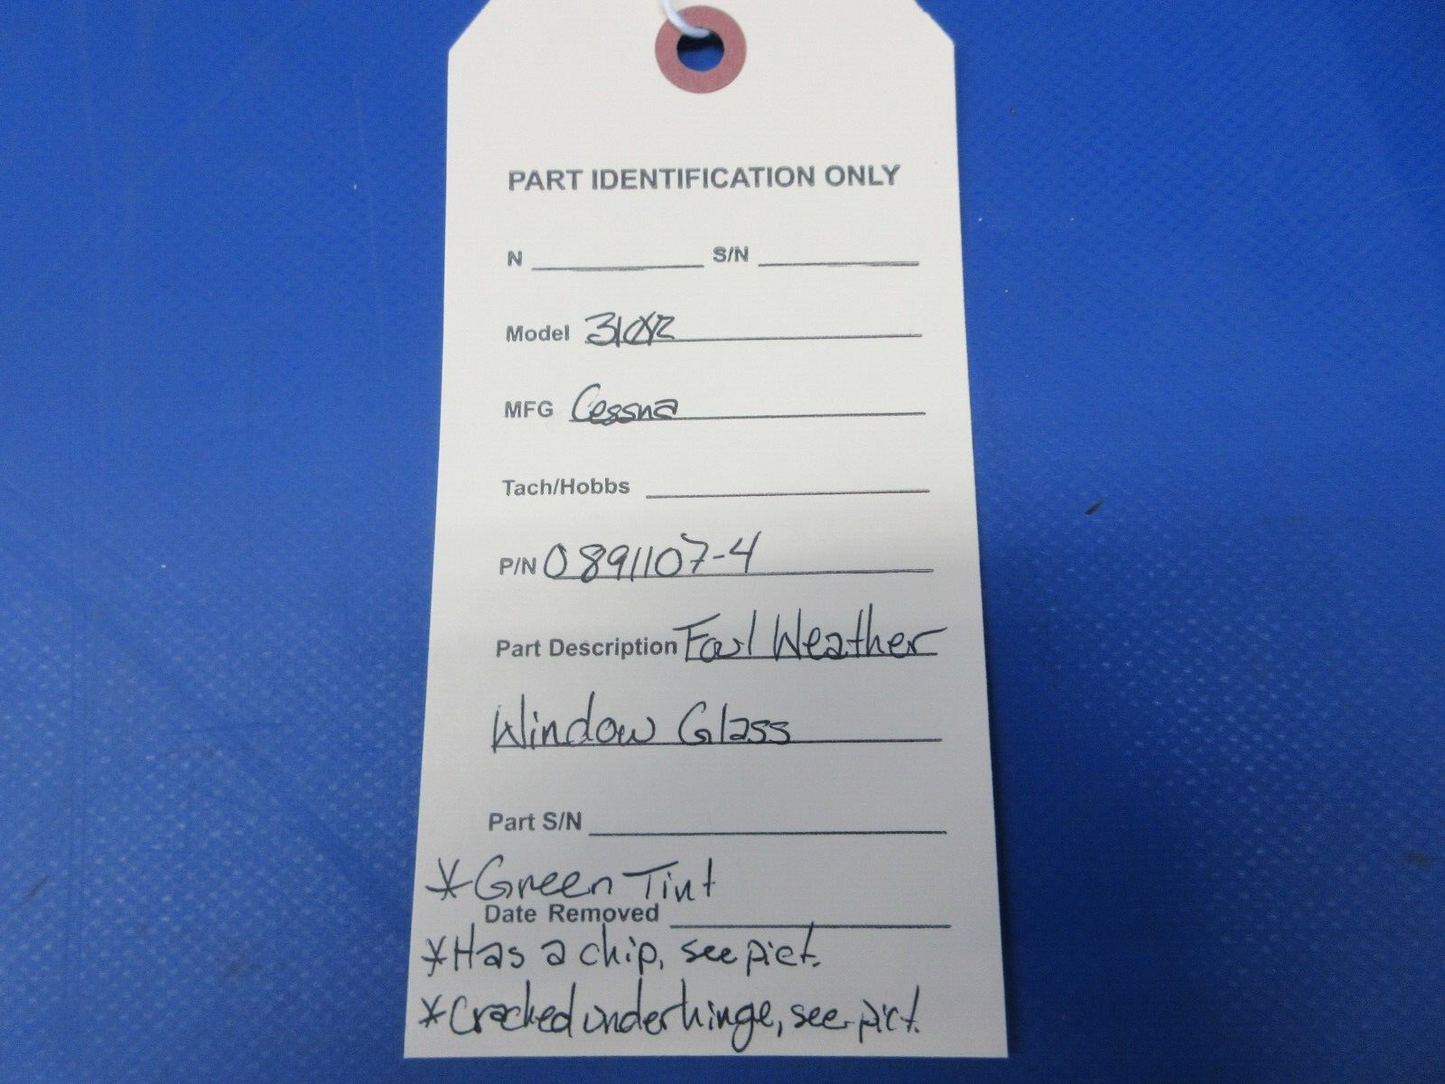 PART IDENTIFICATION ONLY
N S/N
Model
MFG Cessna
Tach/Hobbs
P/N 0891107-4
Part Description Foul Weather
Window Glass
Part S/N
*Green Tint
Date Removed
*Has a chip, see pict.
*Cracked under hinge, see pict.